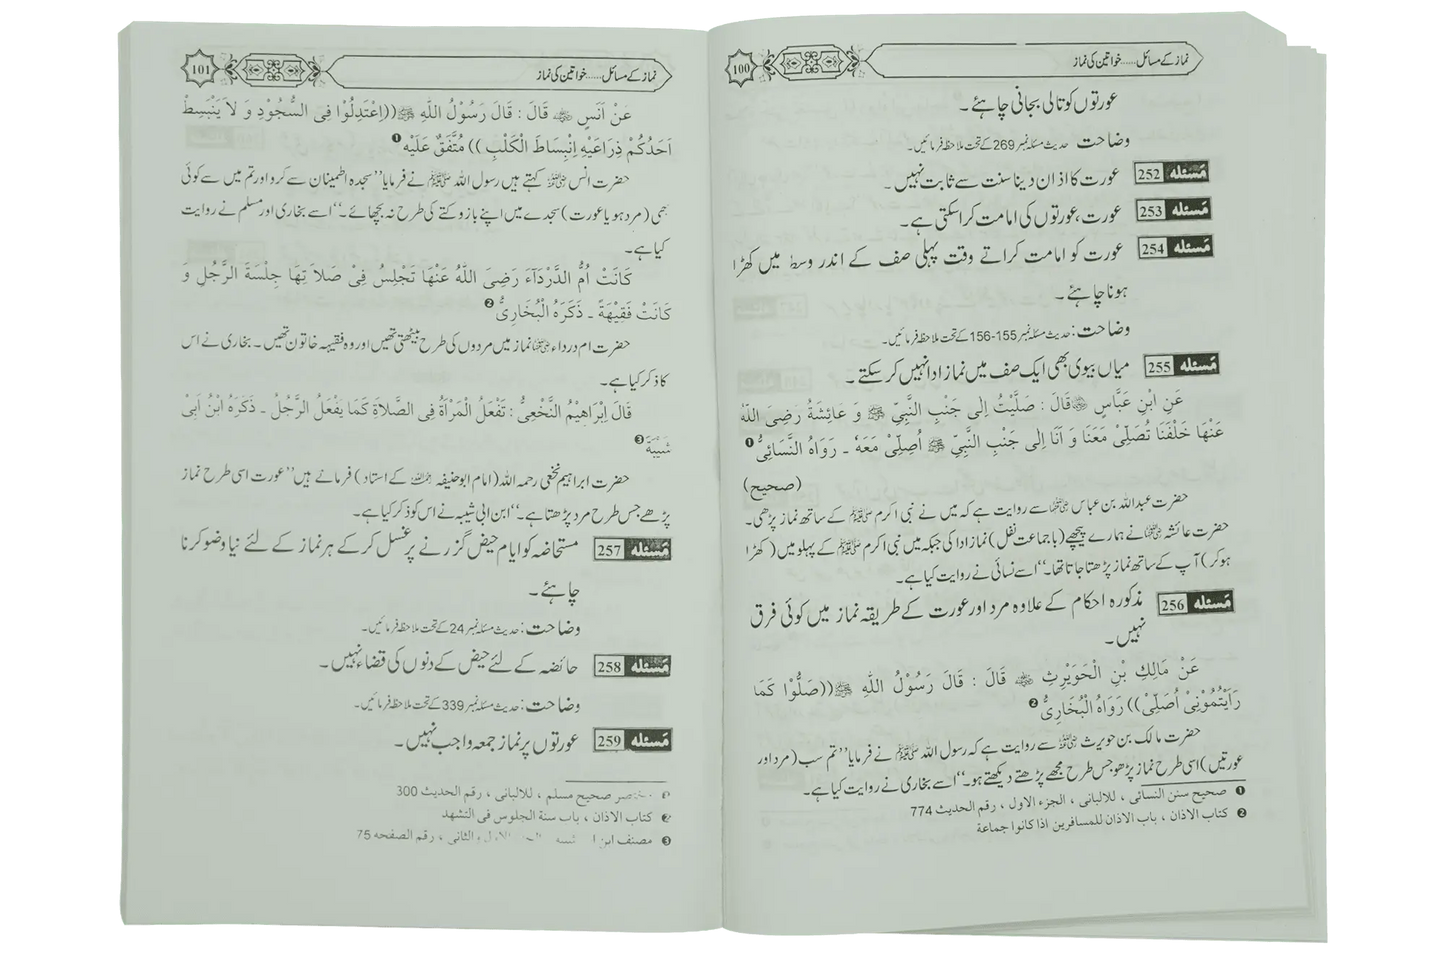 نماز کے مسائل......خواتین کی نماز
100
عورتوں کو تالی بجانی چاہئے۔
وضاحت حدیث مسئلہ نمبر 269 کے تحت ملاحظہ فرمائیں۔
مَسئله 252 عورت کا اذان دینا سنت سے ثابت نہیں۔
مَسئله 253 عورت، عورتوں کی امامت کراسکتی ہے۔
مَسئله 254 عورت کو امامت کراتے وقت پہلی صف کے اندر وسط میں کھڑا
ہونا چاہئے۔
وضاحت: حدیث مسئلہ نمبر 155-156 کے تحت ملاحظہ فرمائیں۔
مَسئله 255 میاں بیوی بھی ایک صف میں نماز ادا نہیں کرسکتے۔
عَنِ ابْنِ عَبَّاسٍ ﷠ قَالَ : صَلَّيْتُ اِلٰى جَنْبِ النَّبِيِّ ﷺ وَ عَائِشَةُ رَضِیَ اللّٰهُ
عَنْهَا خَلْفَنَا تُصَلِّیْ مَعَنَا وَ اَنَا اِلٰى جَنْبِ النَّبِيِّ ﷺ اُصَلِّیْ مَعَهٗ ۔ رَوَاهُ النَّسَائِیُّ ❶
(صحيح)
حضرت عبداللہ بن عباس ؓ سے روایت ہے کہ میں نے نبی اکرم ﷺ کے ساتھ نماز پڑھی۔
حضرت عائشہ ؓ نے ہمارے پیچھے (باجماعت نفل) نماز ادا کی جبکہ میں نبی اکرم ﷺ کے پہلو میں (کھڑا
ہوکر) آپ کے ساتھ نماز پڑھتا جاتا تھا۔‘‘ اسے نسائی نے روایت کیا ہے۔
مَسئله 256 مذکورہ احکام کے علاوہ مرد اور عورت کے طریقہ نماز میں کوئی فرق
نہیں۔
عَنْ مَالِكِ بْنِ الْحَوَيْرِثِ ؓ قَالَ : قَالَ رَسُوْلُ اللّٰهِ ﷺ ((صَلُّوْا كَمَا
رَاَيْتُمُوْنِیْ اُصَلِّیْ)) رَوَاهُ الْبُخَارِیُّ ❷
حضرت مالک بن حویرث ؓ سے روایت ہے کہ رسول اللہ ﷺ نے فرمایا ’’تم سب (مرد اور
عورتیں) اسی طرح نماز پڑھو جس طرح مجھے پڑھتے دیکھتے ہو۔‘‘ اسے بخاری نے روایت کیا ہے۔
❶ صحيح سنن النسائى ، للالبانى ، الجزء الاول ، رقم الحديث 774
❷ كتاب الاذان ، باب الاذان للمسافرين اذا كانوا جماعة
نماز کے مسائل......خواتین کی نماز
101
عَنْ اَنَسٍ ؓ قَالَ : قَالَ رَسُوْلُ اللّٰهِ ﷺ ((اِعْتَدِلُوْا فِی السُّجُوْدِ وَ لاَ يَنْبَسِطْ
اَحَدُكُمْ ذِرَاعَيْهِ اِنْبِسَاطَ الْكَلْبِ )) مُتَّفَقٌ عَلَيْهِ ❶
حضرت انس ؓ کہتے ہیں رسول اللہ ﷺ نے فرمایا ’’سجدہ اطمینان سے کرو اور تم میں سے کوئی
بھی (مرد ہو یا عورت) سجدے میں اپنے بازو کتے کی طرح نہ بچھائے۔‘‘ اسے بخاری اور مسلم نے روایت
کیا ہے۔
كَانَتْ اُمُّ الدَّرْدَآءِ رَضِیَ اللّٰهُ عَنْهَا تَجْلِسُ فِیْ صَلاَ تِهَا جِلْسَةَ الرَّجُلِ وَ
كَانَتْ فَقِيْهَةً ۔ ذَكَرَهُ الْبُخَارِیُّ ❷
حضرت ام درداء ؓ نماز میں مردوں کی طرح بیٹھتی تھیں اور وہ فقیہہ خاتون تھیں۔ بخاری نے اس
کا ذکر کیا ہے۔
قَالَ اِبْرَاهِيْمُ النَّخْعِیُّ : تَفْعَلُ الْمَرْاَةُ فِی الصَّلاَةِ كَمَا يَفْعَلُ الرَّجُلُ ۔ ذَكَرَهُ ابْنُ اَبِیْ
شَيْبَةَ ❸
حضرت ابراہیم نخعی رحمہ اللہ (امام ابوحنیفہ ؒ کے استاد) فرماتے ہیں ’’عورت اسی طرح نماز
پڑھے جس طرح مرد پڑھتا ہے۔‘‘ ابن ابی شیبہ نے اس کو ذکر کیا ہے۔
مَسئله 257 مستحاضہ کو ایام حیض گزرنے پر غسل کرکے ہر نماز کے لئے نیا وضو کرنا
چاہئے۔
وضاحت: حدیث مسئلہ نمبر 24 کے تحت ملاحظہ فرمائیں۔
مَسئله 258 حائضہ کے لئے حیض کے دنوں کی قضاء نہیں۔
وضاحت: حدیث مسئلہ نمبر 339 کے تحت ملاحظہ فرمائیں۔
مَسئله 259 عورتوں پر نماز جمعہ واجب نہیں۔
❶ صحيح مسلم ، للالبانى ، رقم الحديث 300
❷ كتاب الاذان ، باب سنة الجلوس فى التشهد
❸ مصنف ابن والثانى ، رقم الصفحه 75